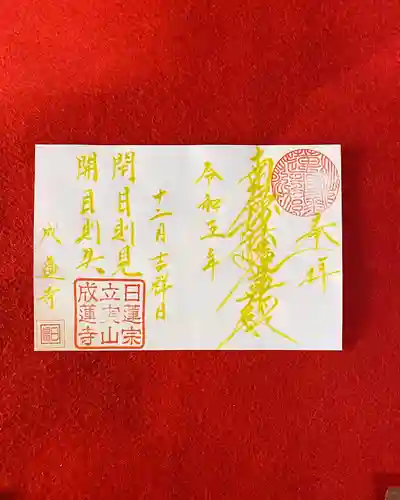 奉拝
南無妙法蓮華経
令和五年
十二月吉祥日
閉目則見
開目則失
成蓮寺
日蓮宗
立実山
成蓮寺